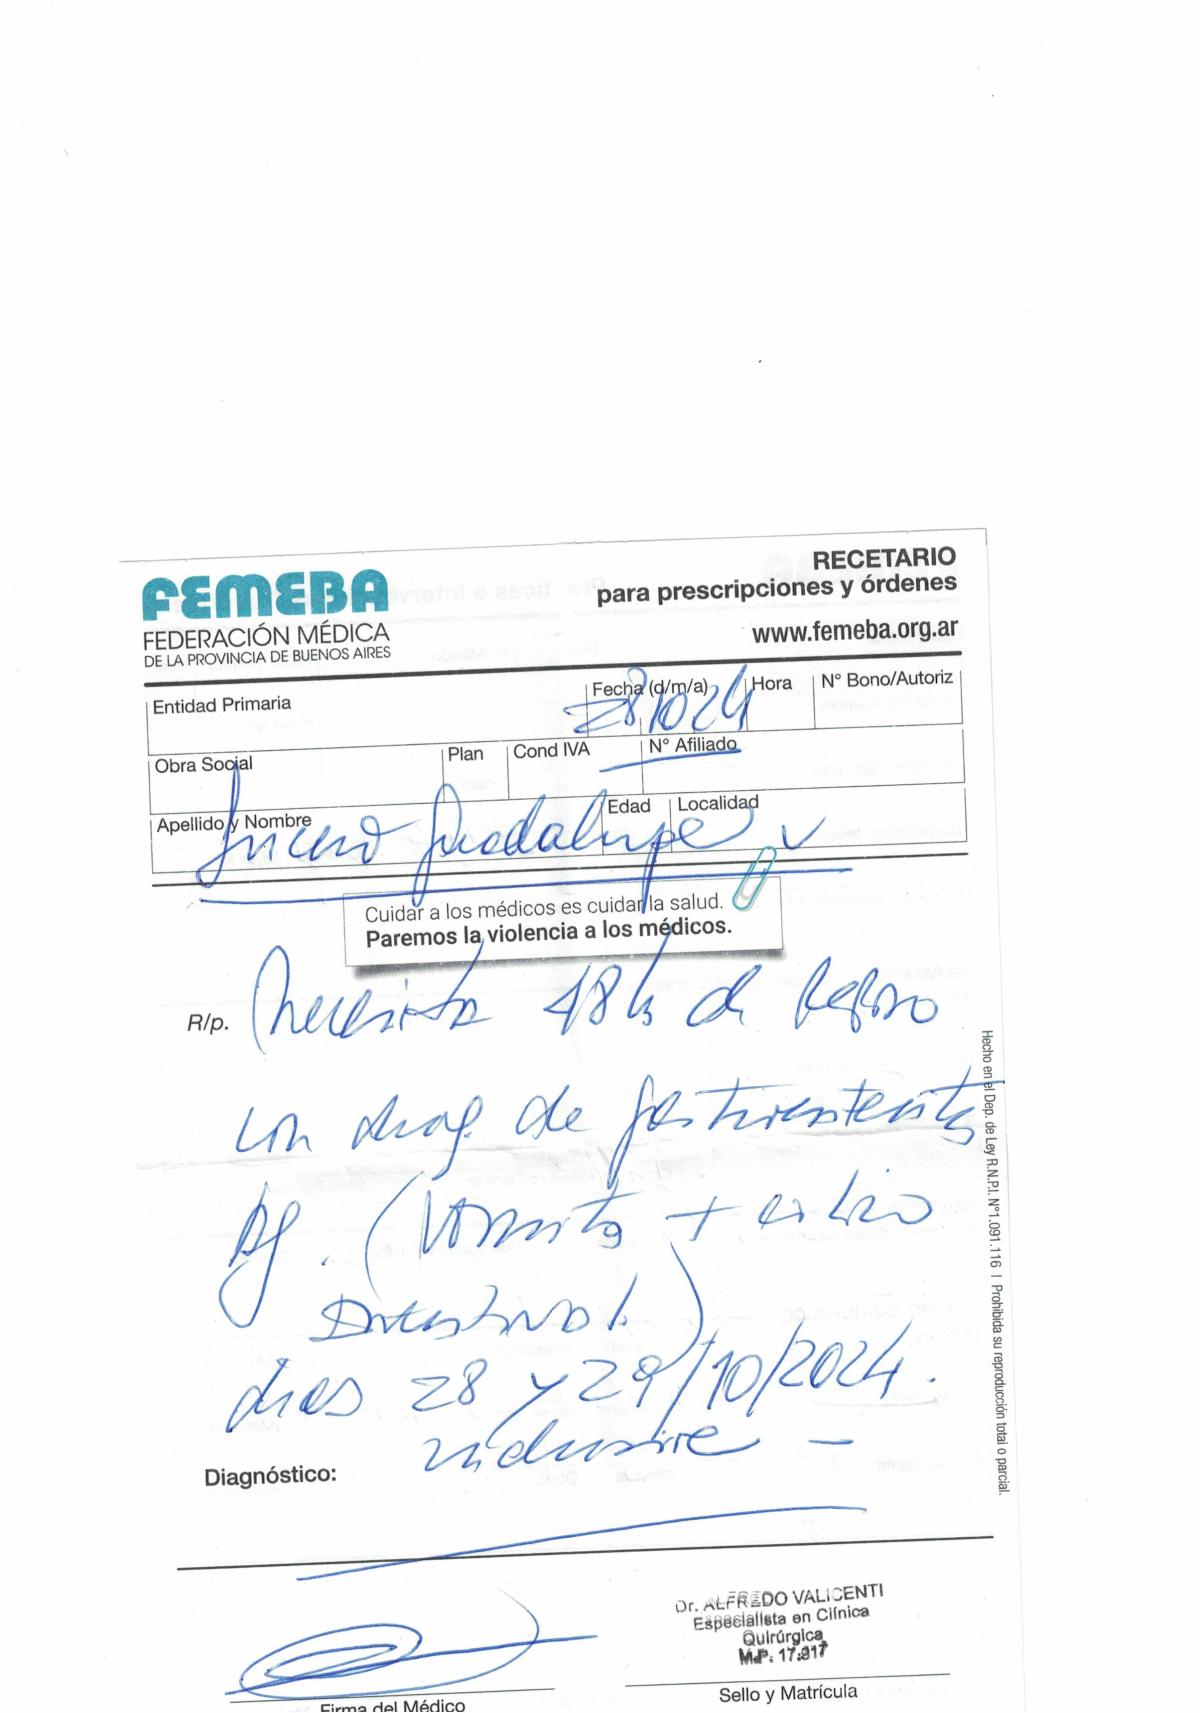 FEMEBA
FEDERACIÓN MÉDICA
DE LA PROVINCIA DE BUENOS AIRES
RECETARIO
para prescripciones y órdenes
www.femeba.org.ar
Entidad Primaria
Fecha (d/m/a) 28/10/24
Hora
N° Bono/Autoriz
Obra Social
Plan
Cond IVA
N° Afiliado
Apellido y Nombre
Guadalupe
Edad
Localidad
Cuidar a los médicos es cuidar la salud.
Paremos la violencia a los médicos.
R/p. Necesita 48 hs de reposo
con diag. de gastroenteritis
Ag. (Vomitos + cólico
intestinal)
dias 28 y 29/10/2024.
inclusive -
Diagnóstico:
Hecho en el Dep. de Ley R.N.P.I. N°1.091.116 | Prohibida su reproducción total o parcial.
Dr. ALFREDO VALICENTI
Especialista en Clínica
Quirúrgica
M.P. 17.917
Firma del Médico
Sello y Matrícula